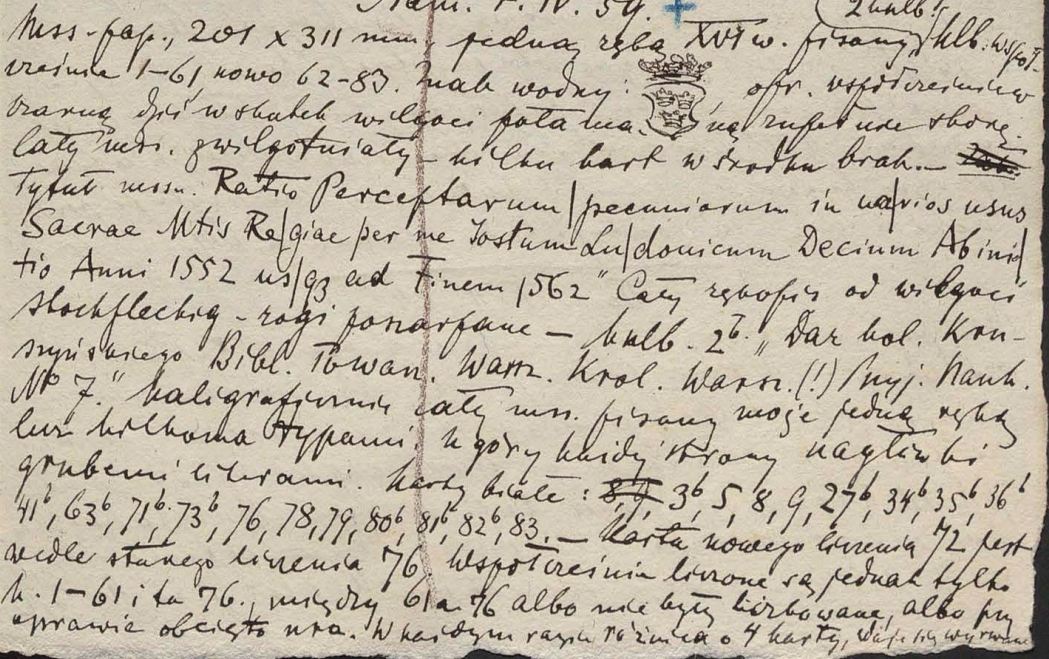 F. IV. 59. + 2 hlb!
Mss-pap., 201 x 311 mm, jedną ręką XVI w. pisany, hlb. współ-
cześnie 1-61 nowo 62-83. Znak wodny: opr. współcześnie w
czarną dziś w skutek wilgoci połamaną zupełnie skórę.
Cały mss. zwilgotniały - kilku kart w środku brak. -
Tytuł mssu. Ratio Perceptarum | pecuniarum in va|rios usus
Sacrae Mtis Re|giae per me Iostum Lu|dovicum Decium Ab ini|
tio Anni 1552 us|q3 ad Finem 1562" Cały rękopis od wilgoci
stockfleckig - rogi poszarpane - k hlb. 2b. "Dar kol. Kru-
szyńskiego Bibl. Towarz. Warsz. Krol. Warsz. (!) Przyj. Nauk.
No 7." Kaligraficznie cały mss. pisany może jedną ręką
lecz kilkoma typami. U góry każdej strony nagłówki
grubemi literami. Karty białe: 8, 9, 3b, 5, 8, 9, 27b, 34b, 35b, 36b
41b, 63b, 71b, 73b, 76, 78, 79, 80b, 81b, 82b, 83. - Karta nowego liczenia 72 jest
wedle starego liczenia 76. Współcześnie liczone są jednak tylko
k. 1-61 i ta 76., między 61 a 76 albo nie były liczbowane, albo przy
oprawie obcięto nra. W każdym razie różnica o 4 karty, wyrwane